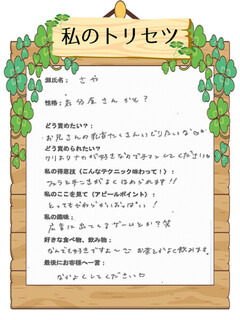 私のトリセツ
源氏名： さや
性格： 気分屋さんかも？
どう責めたい？：
お兄さんの乳首たくさんいじりたいな♡
どう責められたい？
クリとナカが好きなので手マンしてください
私の得意技（こんなテクニック味わって！）：
フェラと手こきがよくほめられます!!
私のここを見て（アピールポイント）：
とってもやわらかいおっぱい！
私の趣味：
広告に出てくるゲームとか？笑
好きな食べ物、飲み物：
なんでも好きですよ〜 お茶とかよく飲みます。
最後にお客様へ一言：
なかよくしてください♡